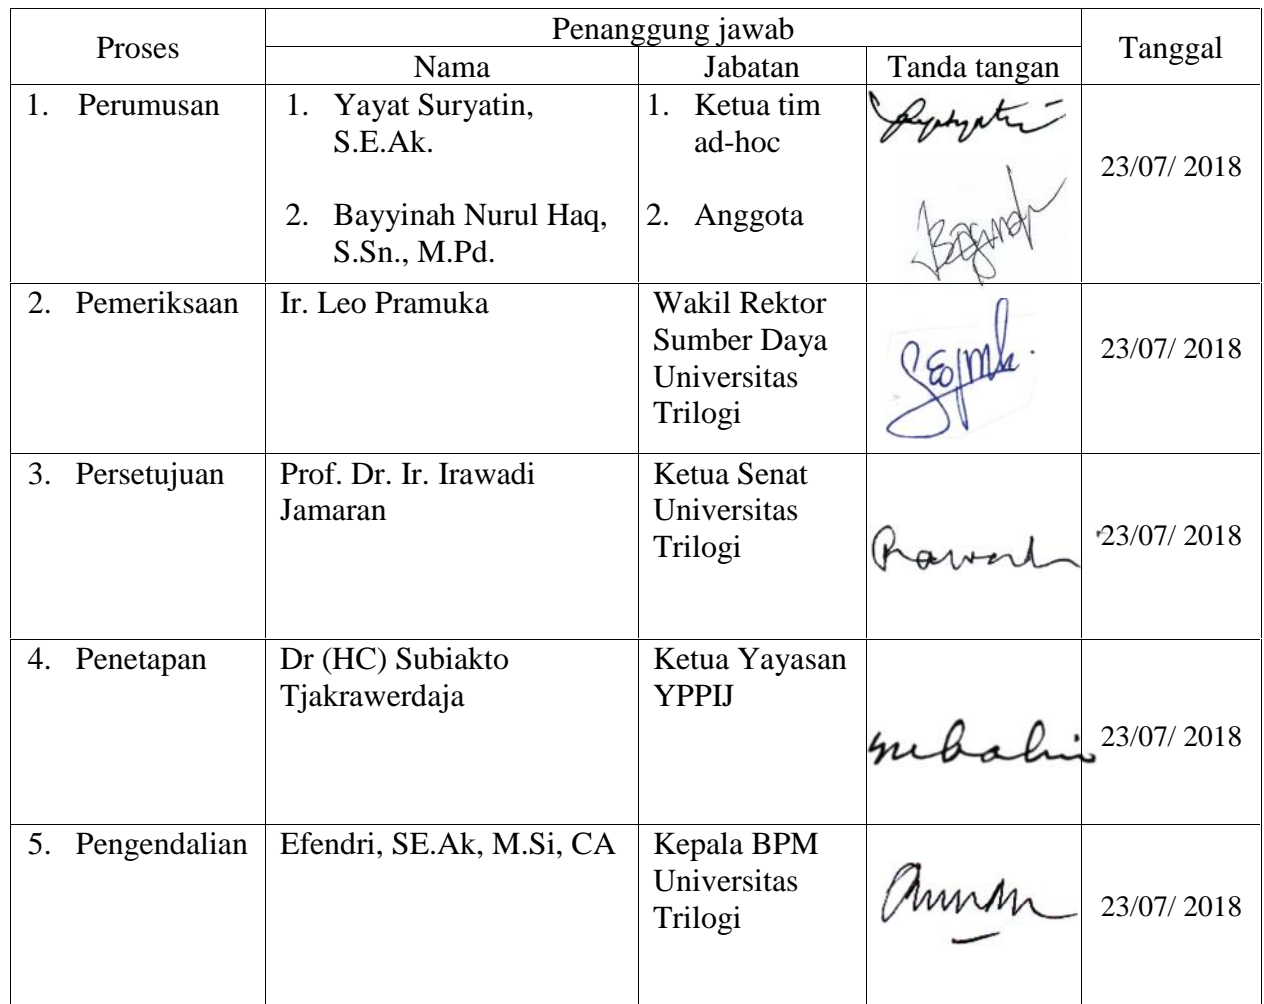 Proses
Penanggung jawab
Tanggal
Nama
Jabatan
Tanda tangan
1. Perumusan
1. Yayat Suryatin,
S.E.Ak.
2. Bayyinah Nurul Haq,
S.Sn., M.Pd.
1. Ketua tim
ad-hoc
2. Anggota
23/07/ 2018
2. Pemeriksaan
Ir. Leo Pramuka
Wakil Rektor
Sumber Daya
Universitas
Trilogi
23/07/ 2018
3. Persetujuan
Prof. Dr. Ir. Irawadi
Jamaran
Ketua Senat
Universitas
Trilogi
23/07/ 2018
4. Penetapan
Dr (HC) Subiakto
Tjakrawerdaja
Ketua Yayasan
YPPIJ
23/07/ 2018
5. Pengendalian
Efendri, SE.Ak, M.Si, CA
Kepala BPM
Universitas
Trilogi
23/07/ 2018